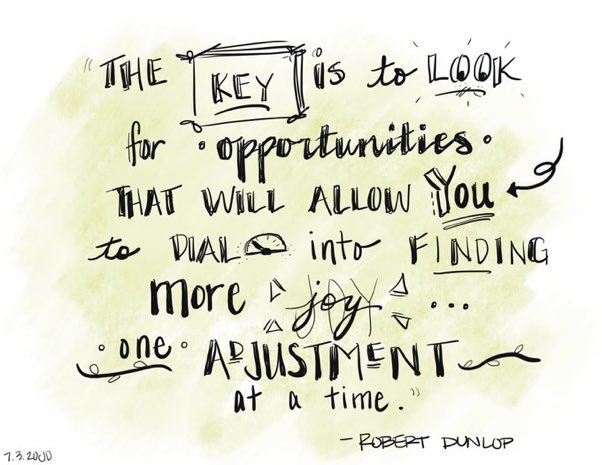 "THE KEY is to LOOK
for • opportunities •
THAT WILL ALLOW You
to DIAL into FINDING
more joy ...
• one • ADJUSTMENT
at a time."
- ROBERT DUNLOP